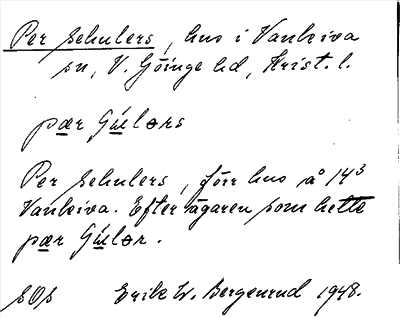 Per Schulers, hus i Vankiva
sn, V. Göinge hd, Krist. l.
pær Gúlers
Per Schulers, förr hus å 14³
Vankiva. Efter ägaren som hette
pær Gúlər.
SOs Erik W. Bergenrud 1948.